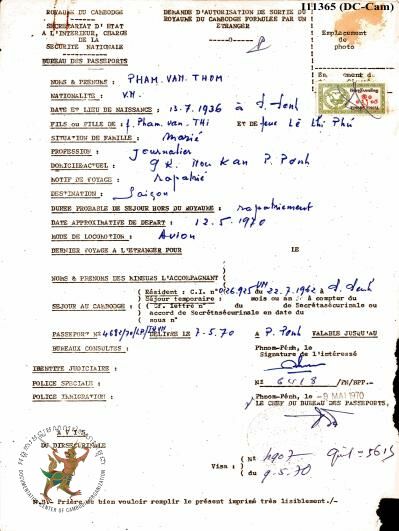 I11365 (DC-Cam)
ROYAUME DU CAMBODGE
SECRETARIAT D'ETAT
A L'INTERIEUR, CHARGE
DE LA
SÉCURITÉ NATIONALE
BUREAU DES PASSEPORTS
DEMANDE D'AUTORISATION DE SORTIE DU
ROYAUME DU CAMBODGE FORMULEE PAR UN
ETRANGER
Emplacement
de
photo
NOMS & PRENOMS : PHAM. VAN. THOM
NATIONALITE : V.N.
DATE ET LIEU DE NAISSANCE : 13.7.1936 à
FILS ou FILLE DE : f. Pham. van. Thi ET DE feue Lê thi Phú
SITUATION DE FAMILLE : Marié
PROFESSION : Journalier
DOMICILE ACTUEL : Kan P. Penh
MOTIF DE VOYAGE : rapatrié
DESTINATION : Saïgon
DURÉE PROBABLE DE SEJOUR HORS DU ROYAUME : rapatriement
DATE APPROXIMATIVE DE DEPART : 12.5.1970
MODE DE LOCOMOTION : Avion
DERNIER VOYAGE A L'ETRANGER POUR LE
NOMS & PRENOMS DES MINEURS L'ACCOMPAGNANT (
SEJOUR AU CAMBODGE :
( Résident : C.I. n° 026.925 VN du 22.7.1962 à
( Séjour temporaire : mois ou an à compter du
( lettre n° du de Secrétasécurule ou
( accord de Secrétasécurule en date du
( sous n°
PASSEPORT N° 4682/70/LP/ DELIVRE LE 7-5.70 A P. Penh VALABLE JUSQU'AU
BUREAUX CONSULTES :
Phnom-Pénh, le
Signature de l'intéressé
IDENTITE JUDICIAIRE :
POLICE SPECIALE :
POLICE IMMIGRATION :
N° 6418 /PN/BPP.-
Phnom-Pénh, le - 9 MAI 1970
LE CHEF DU BUREAU DES PASSEPORTS,
A V I S
DU DIRSECURINALE
Visa :
( N° 4907
( du 9.5.70
DOCUMENTATION CENTER OF CAMBODIA
N.B/- Prière de bien vouloir remplir le présent imprimé très lisiblement./-